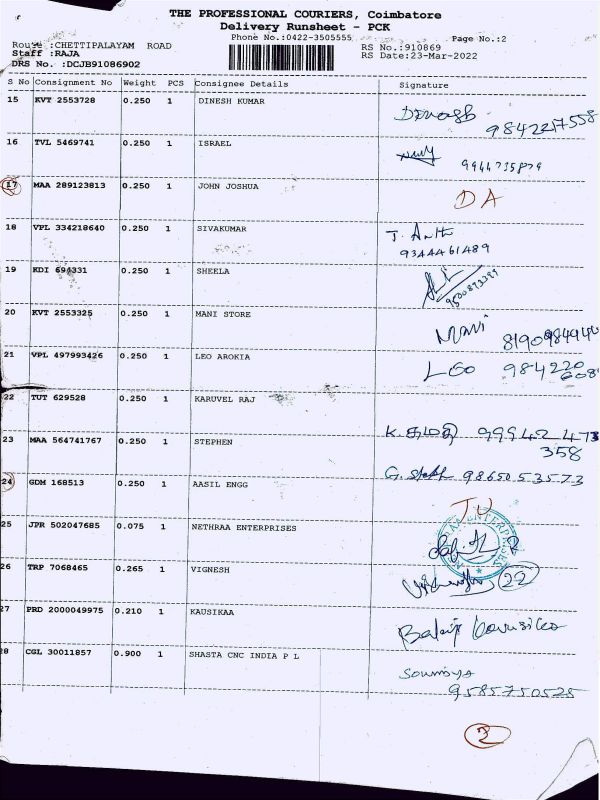 THE PROFESSIONAL COURIERS, Coimbatore
Delivery Runsheet - PCK
Phone No.:0422-3505555 Page No.:2
Route :CHETTIPALAYAM ROAD RS No.:910869
Staff :RAJA RS Date:23-Mar-2022
DRS No. :DCJB91086902
S No Consignment No Weight PCS Consignee Details Signature
15 KVT 2553728 0.250 1 DINESH KUMAR
9842217558
16 TVL 5469741 0.250 1 ISRAEL
17 MAA 289123813 0.250 1 JOHN JOSHUA DA
18 VPL 334218640 0.250 1 SIVAKUMAR
9344461489
19 KDI 694331 0.250 1 SHEELA
20 KVT 2553325 0.250 1 MANI STORE Mani
21 VPL 497993426 0.250 1 LEO AROKIA Leo 984220
608
22 TUT 629528 0.250 1 KARUVEL RAJ
23 MAA 564741767 0.250 1 STEPHEN K. 99942 473
358
24 GDM 168513 0.250 1 AASIL ENGG G. 9865053573
25 JPR 502047685 0.075 1 NETHRAA ENTERPRISES
26 TRP 7068465 0.265 1 VIGNESH 22
27 PRD 2000049975 0.210 1 KAUSIKAA Balaji
28 CGL 30011857 0.900 1 SHASTA CNC INDIA P L Soumiya
9585750525
2